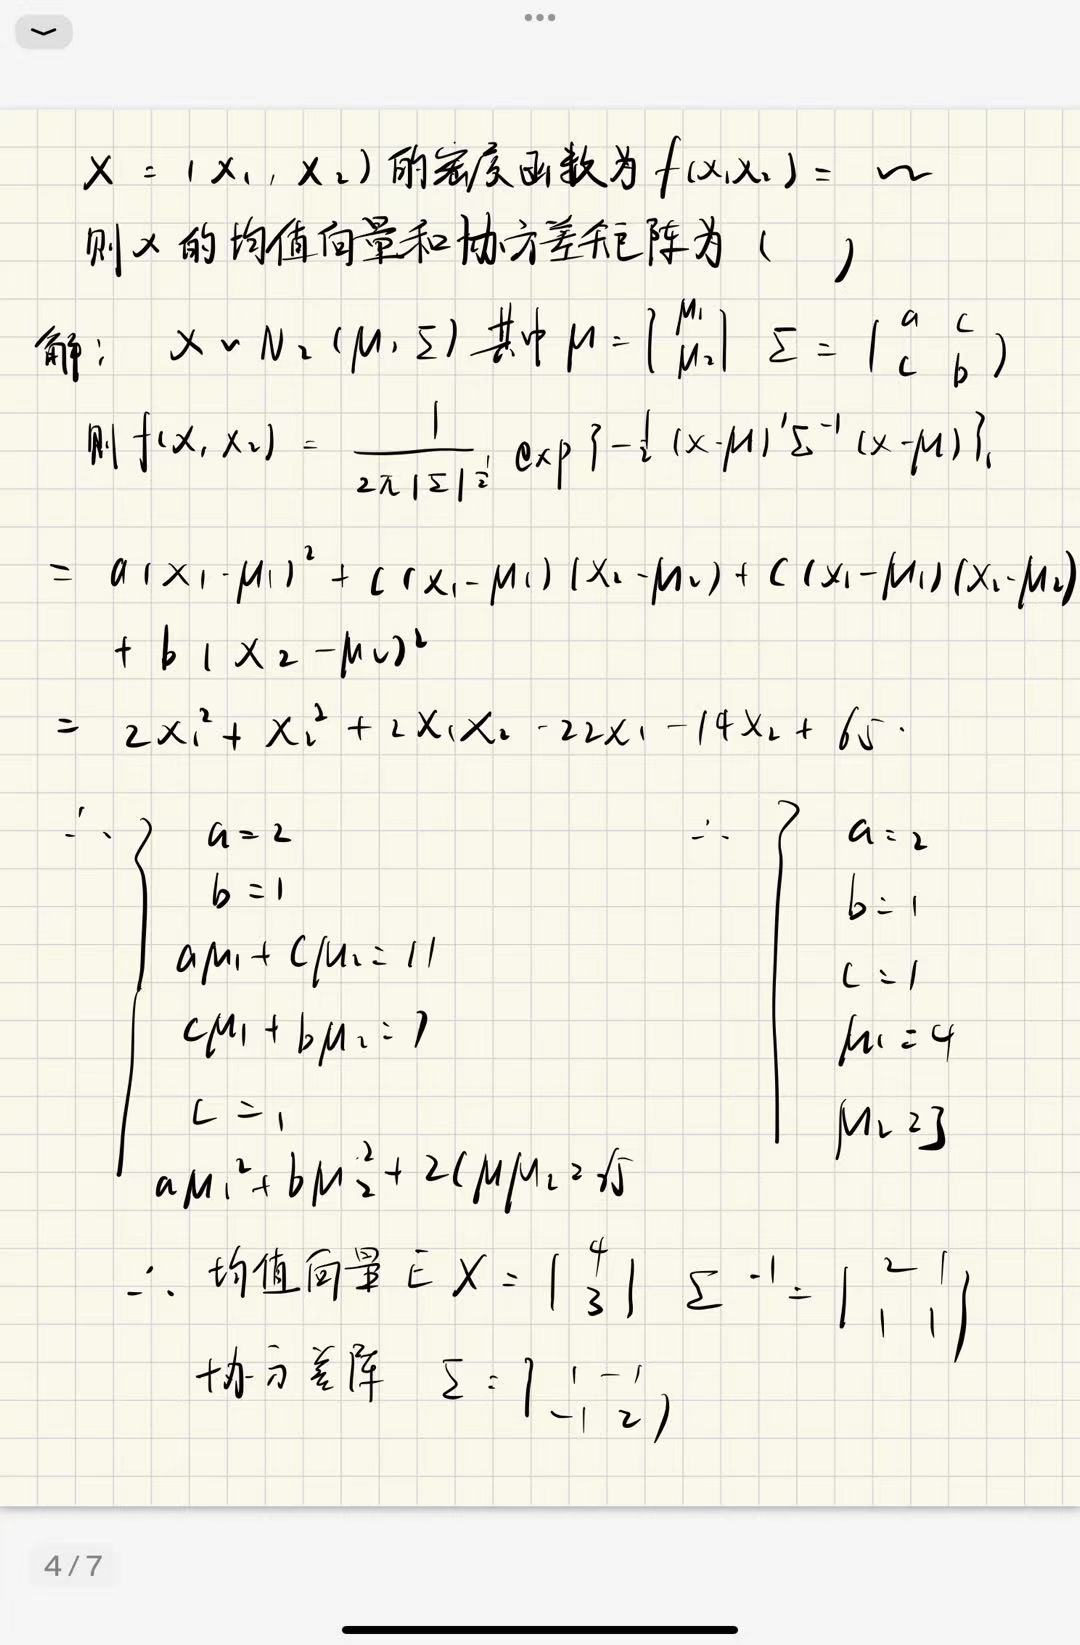 X = (X₁, X₂) 的密度函数为 f(x₁x₂) = ~
则 x 的均值向量和协方差矩阵为 ( )
解: X ~ N₂(μ, Σ) 其中 μ = [μ₁ μ₂] Σ = (a c c b)
则 f(x₁ x₂) = 1/(2π|Σ|^½) exp{-½(x-μ)'Σ⁻¹(x-μ)}
= a(x₁-μ₁)² + c(x₁-μ₁)(x₂-μ₂) + c(x₁-μ₁)(x₂-μ₂)
+ b(x₂-μ₂)²
= 2x₁² + x₂² + 2x₁x₂ -22x₁ -14x₂ + 65.
∴ { a=2 ∴ { a=2
b=1 b=1
aμ₁+cμ₂=11 c=1
cμ₁+bμ₂=7 μ₁=4
c=1 μ₂=3
aμ₁²+bμ₂²+2cμμ₂=65
∴ 均值向量 EX = [4 3] Σ⁻¹ = (2 1 1 1)
协方差阵 Σ = (1 -1 -1 2)
4/7